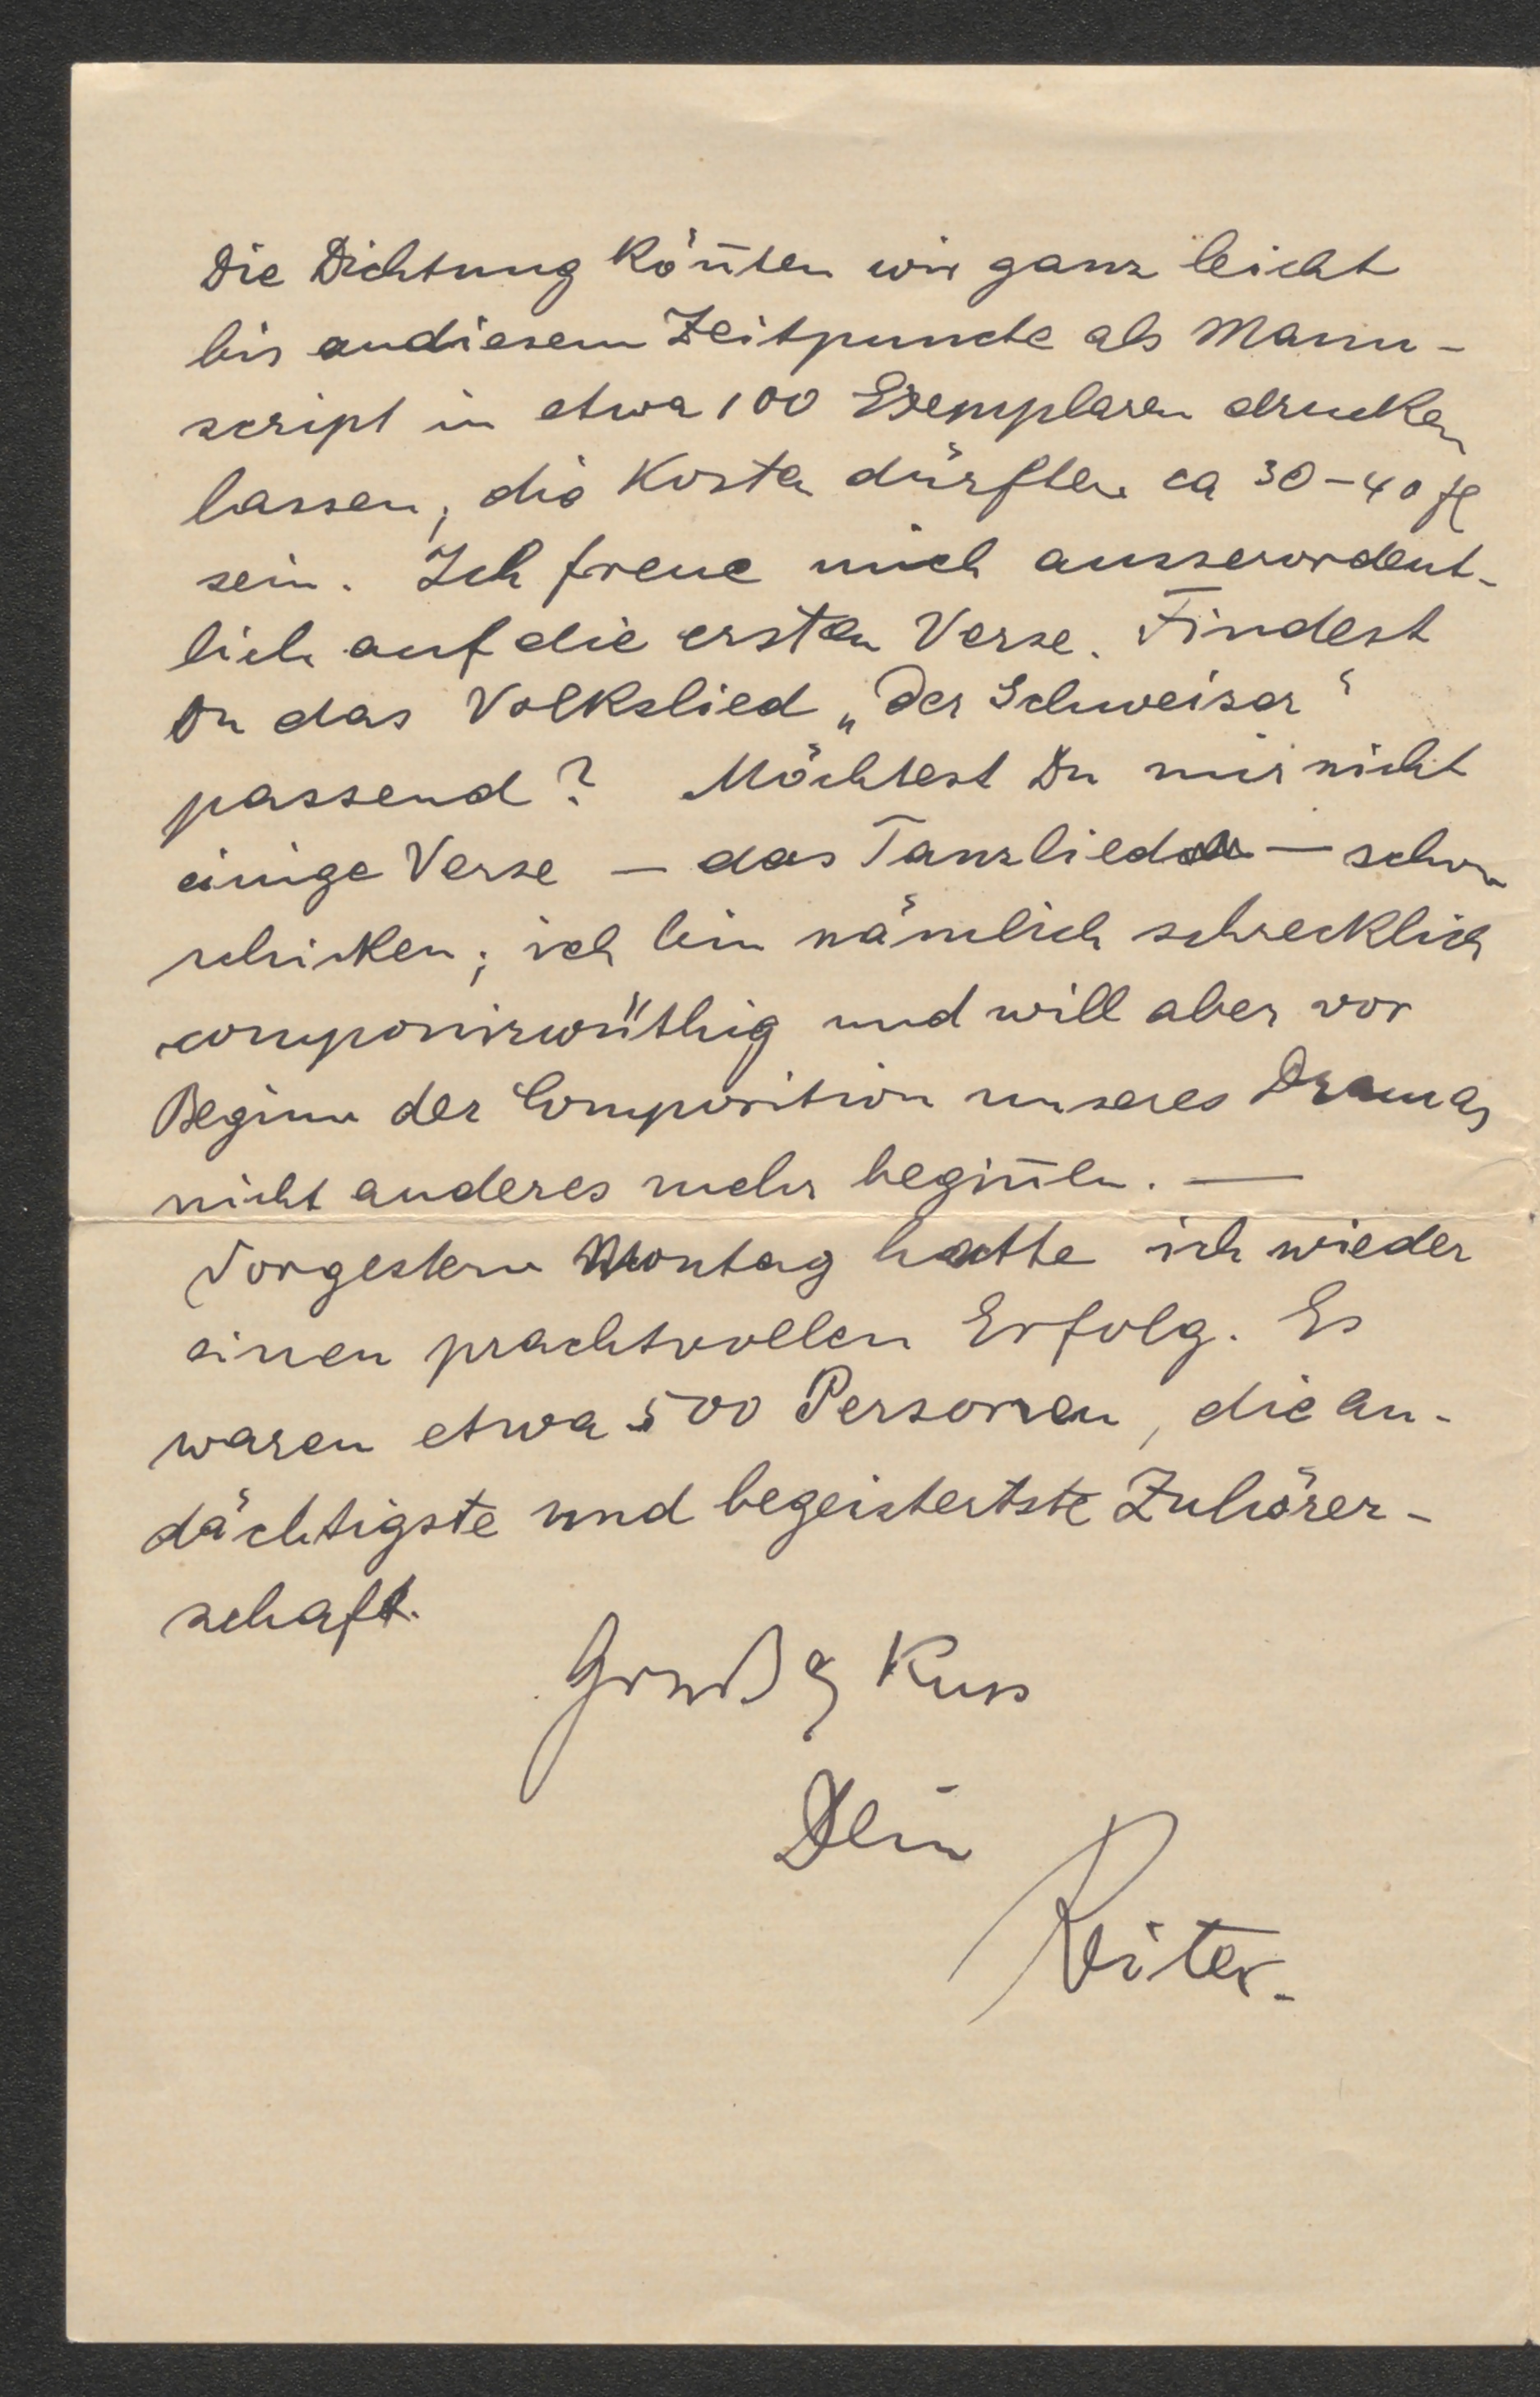 Die Dichtung kön̄ten wir ganz leicht
bis zu diesem Zeitpuncte als Manu-
script in etwa 100 Exemplaren drucken
lassen, die Kosten dürften ca 30-40 fl
sein. Ich freue mich ausserordent-
lich auf die ersten Verse. Findest
Du das Volkslied „Der Schweizer“
passend? Möchtest Du mir nicht
einige Verse – das Tanzlied – schon
schicken; ich bin nämlich schrecklich
componirwüthig und will aber vor
Beginn der Composition unseres Dramas
nicht anderes mehr begin̄en. —
Vorgestern Montag hatte ich wieder
einen prachtvollen Erfolg. Es
waren etwa 500 Personen, die an-
dächtigste und begeistertste Zuhörer-
schaft.
Gruß & Kuss
Dein
Reiter.